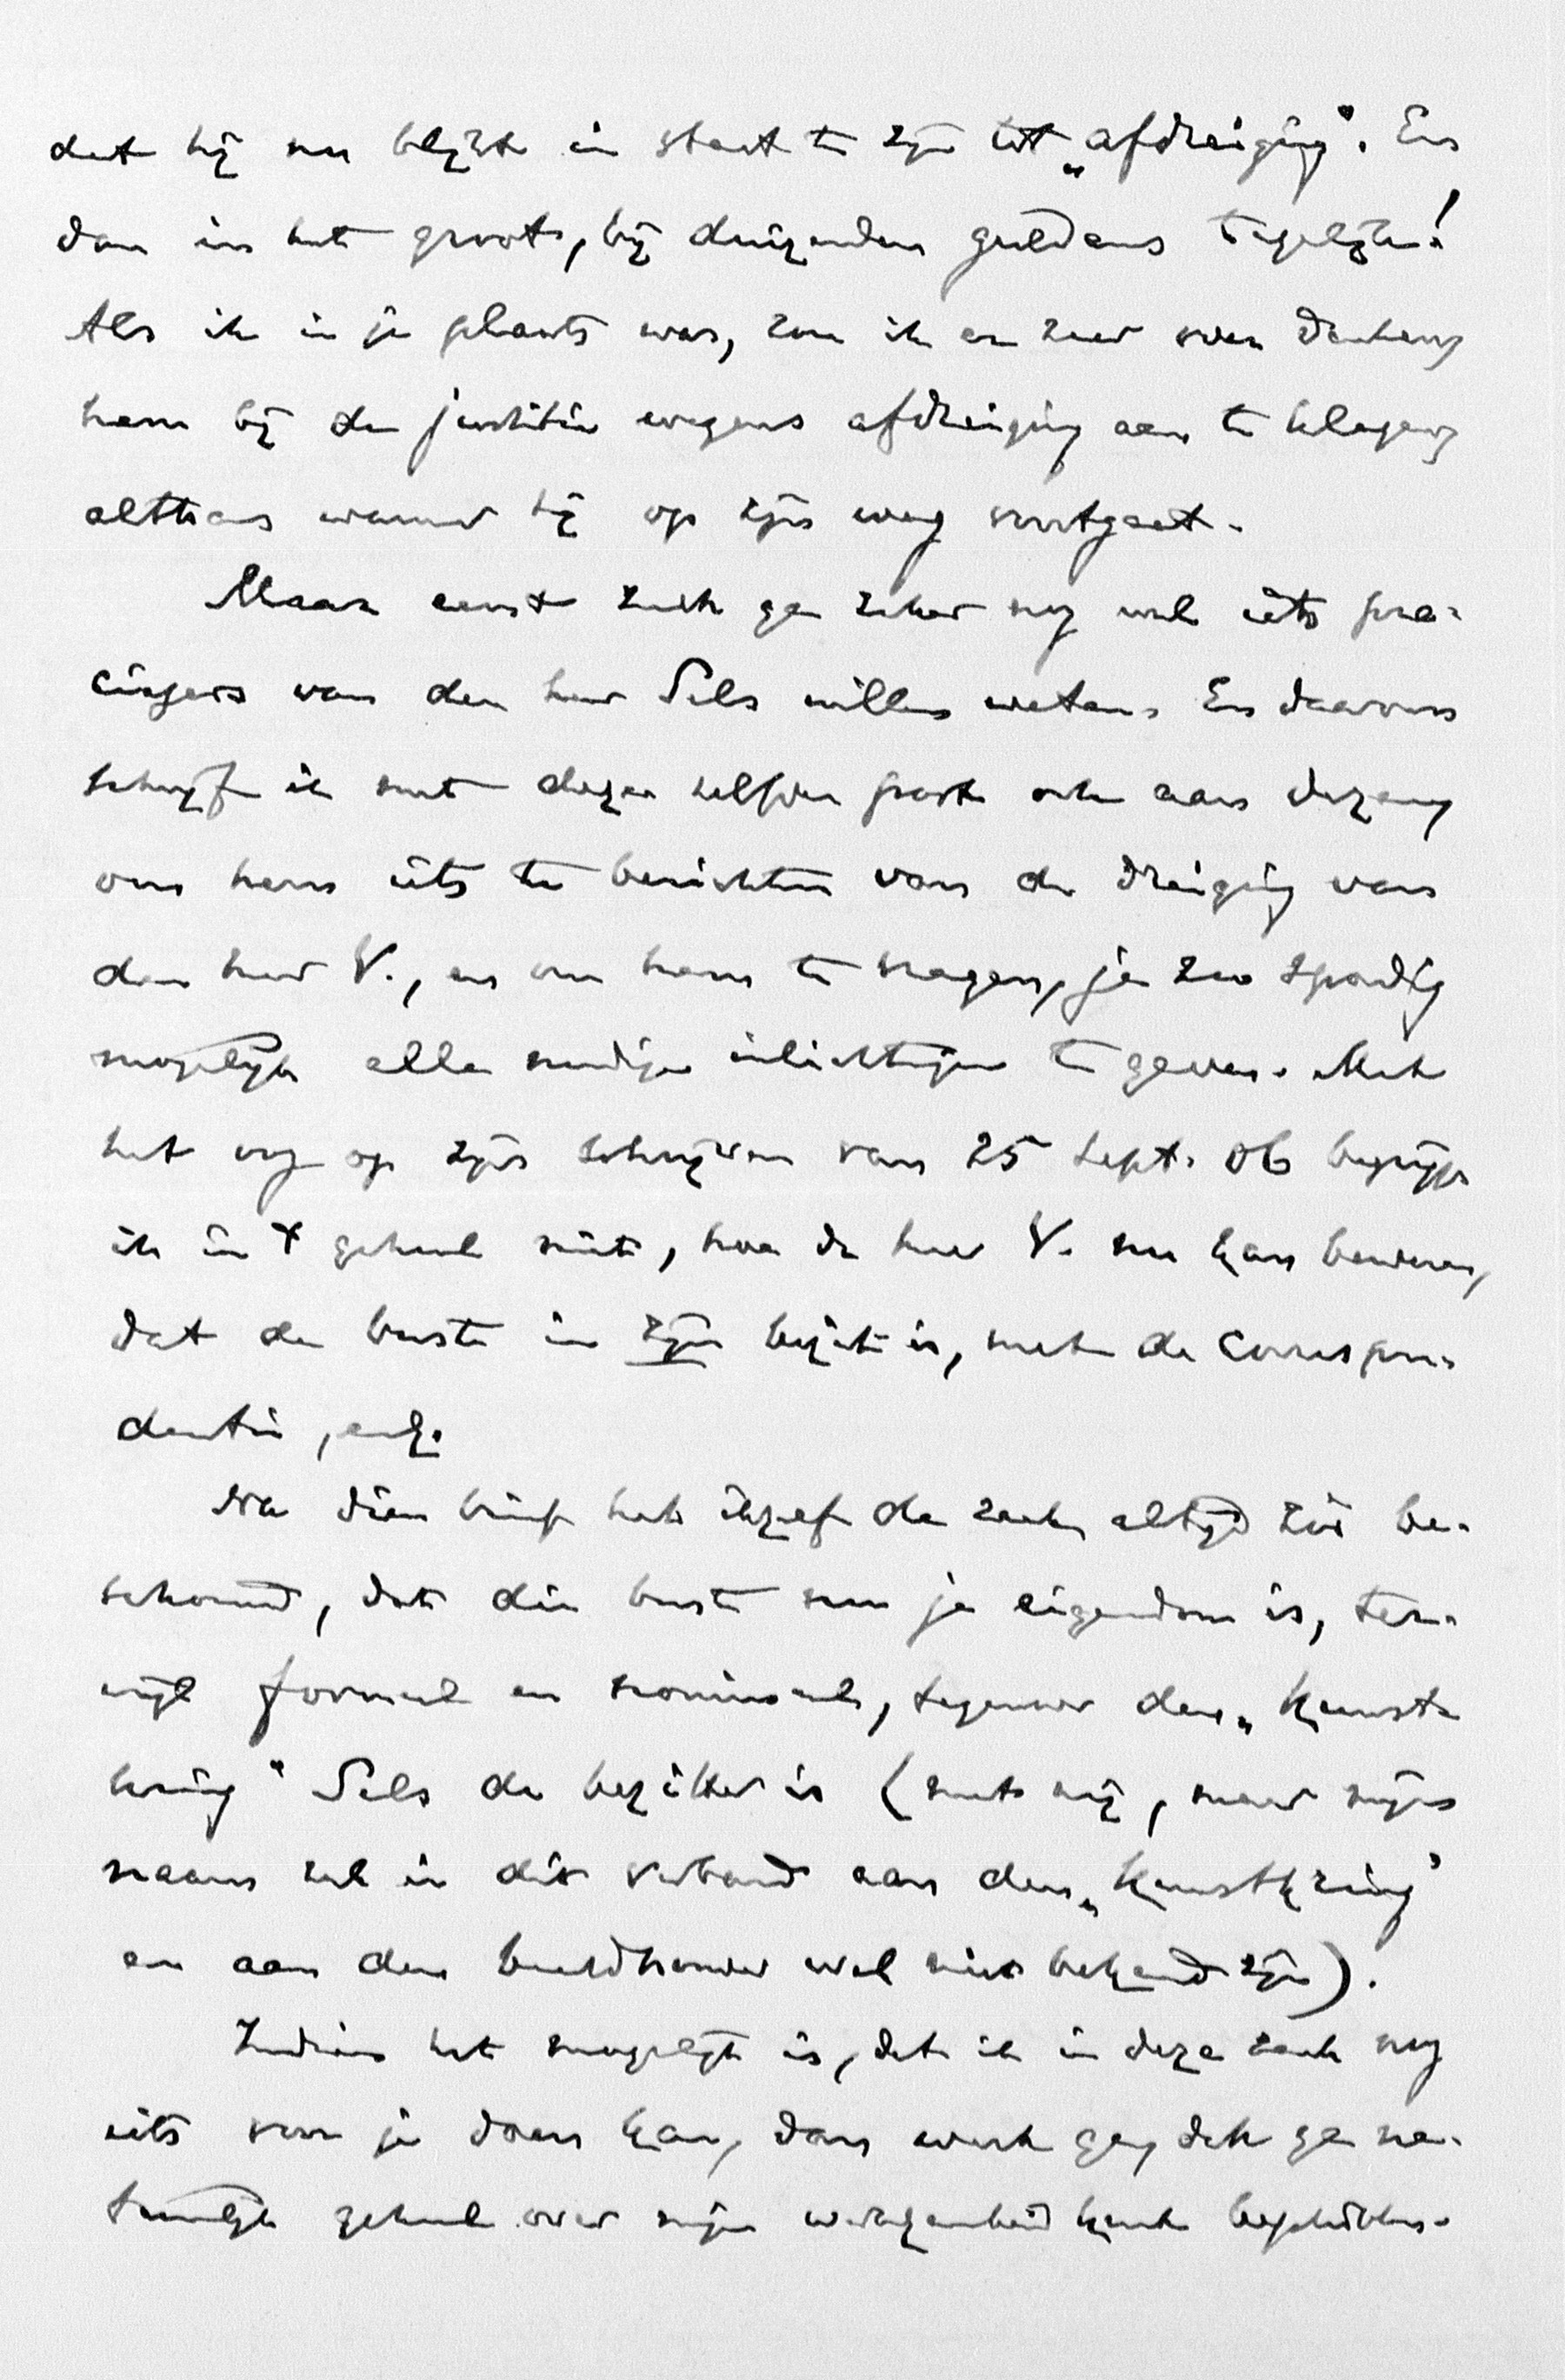 dat hij nu blijkt in staat te zijn tot „afdreiging". En
dan in het groot, bij duizenden guldens tegelijk!
Als ik in je plaats was, zou ik er zeer over denken,
hem bij de justitie wegens afdreiging aan te klagen,
althans wanneer hij op zijn weg voortgaat.
Maar eerst zult ge zeker nog wel iets pre-
ciesers van den heer Sels willen weten. En daarom
schrijf ik met deze zelfde post ook aan dezen,
om hem iets te berichten van de dreiging van
den heer V., en om hem te vragen, je zoo spoedig
mogelijk alle noodige inlichtingen te geven. Met
het oog op zijn schrijven van 25 Sept. 06 begrijp
ik in 't geheel niet, hoe de heer V. nu kan beweren,
dat de buste in zijn bezit is, met de correspon-
dentie, enz.
Na dien brief heb ikzelf de zaak altijd zóó be-
schouwd, dat die buste nu je eigendom is, ter-
wijl formeel en nominaal, tegenover den „Kunst-
kring" Sels de bezitter is (niet wij, maar mijn
naam zal in dit verband aan den „Kunstkring"
en aan den beeldhouwer wel niet bekend zijn).
Indien het mogelijk is, dat ik in deze zaak nog
iets voor je doen kan, dan weet ge, dat ge na-
tuurlijk geheel over mijn werkzaamheid kunt beschikken.